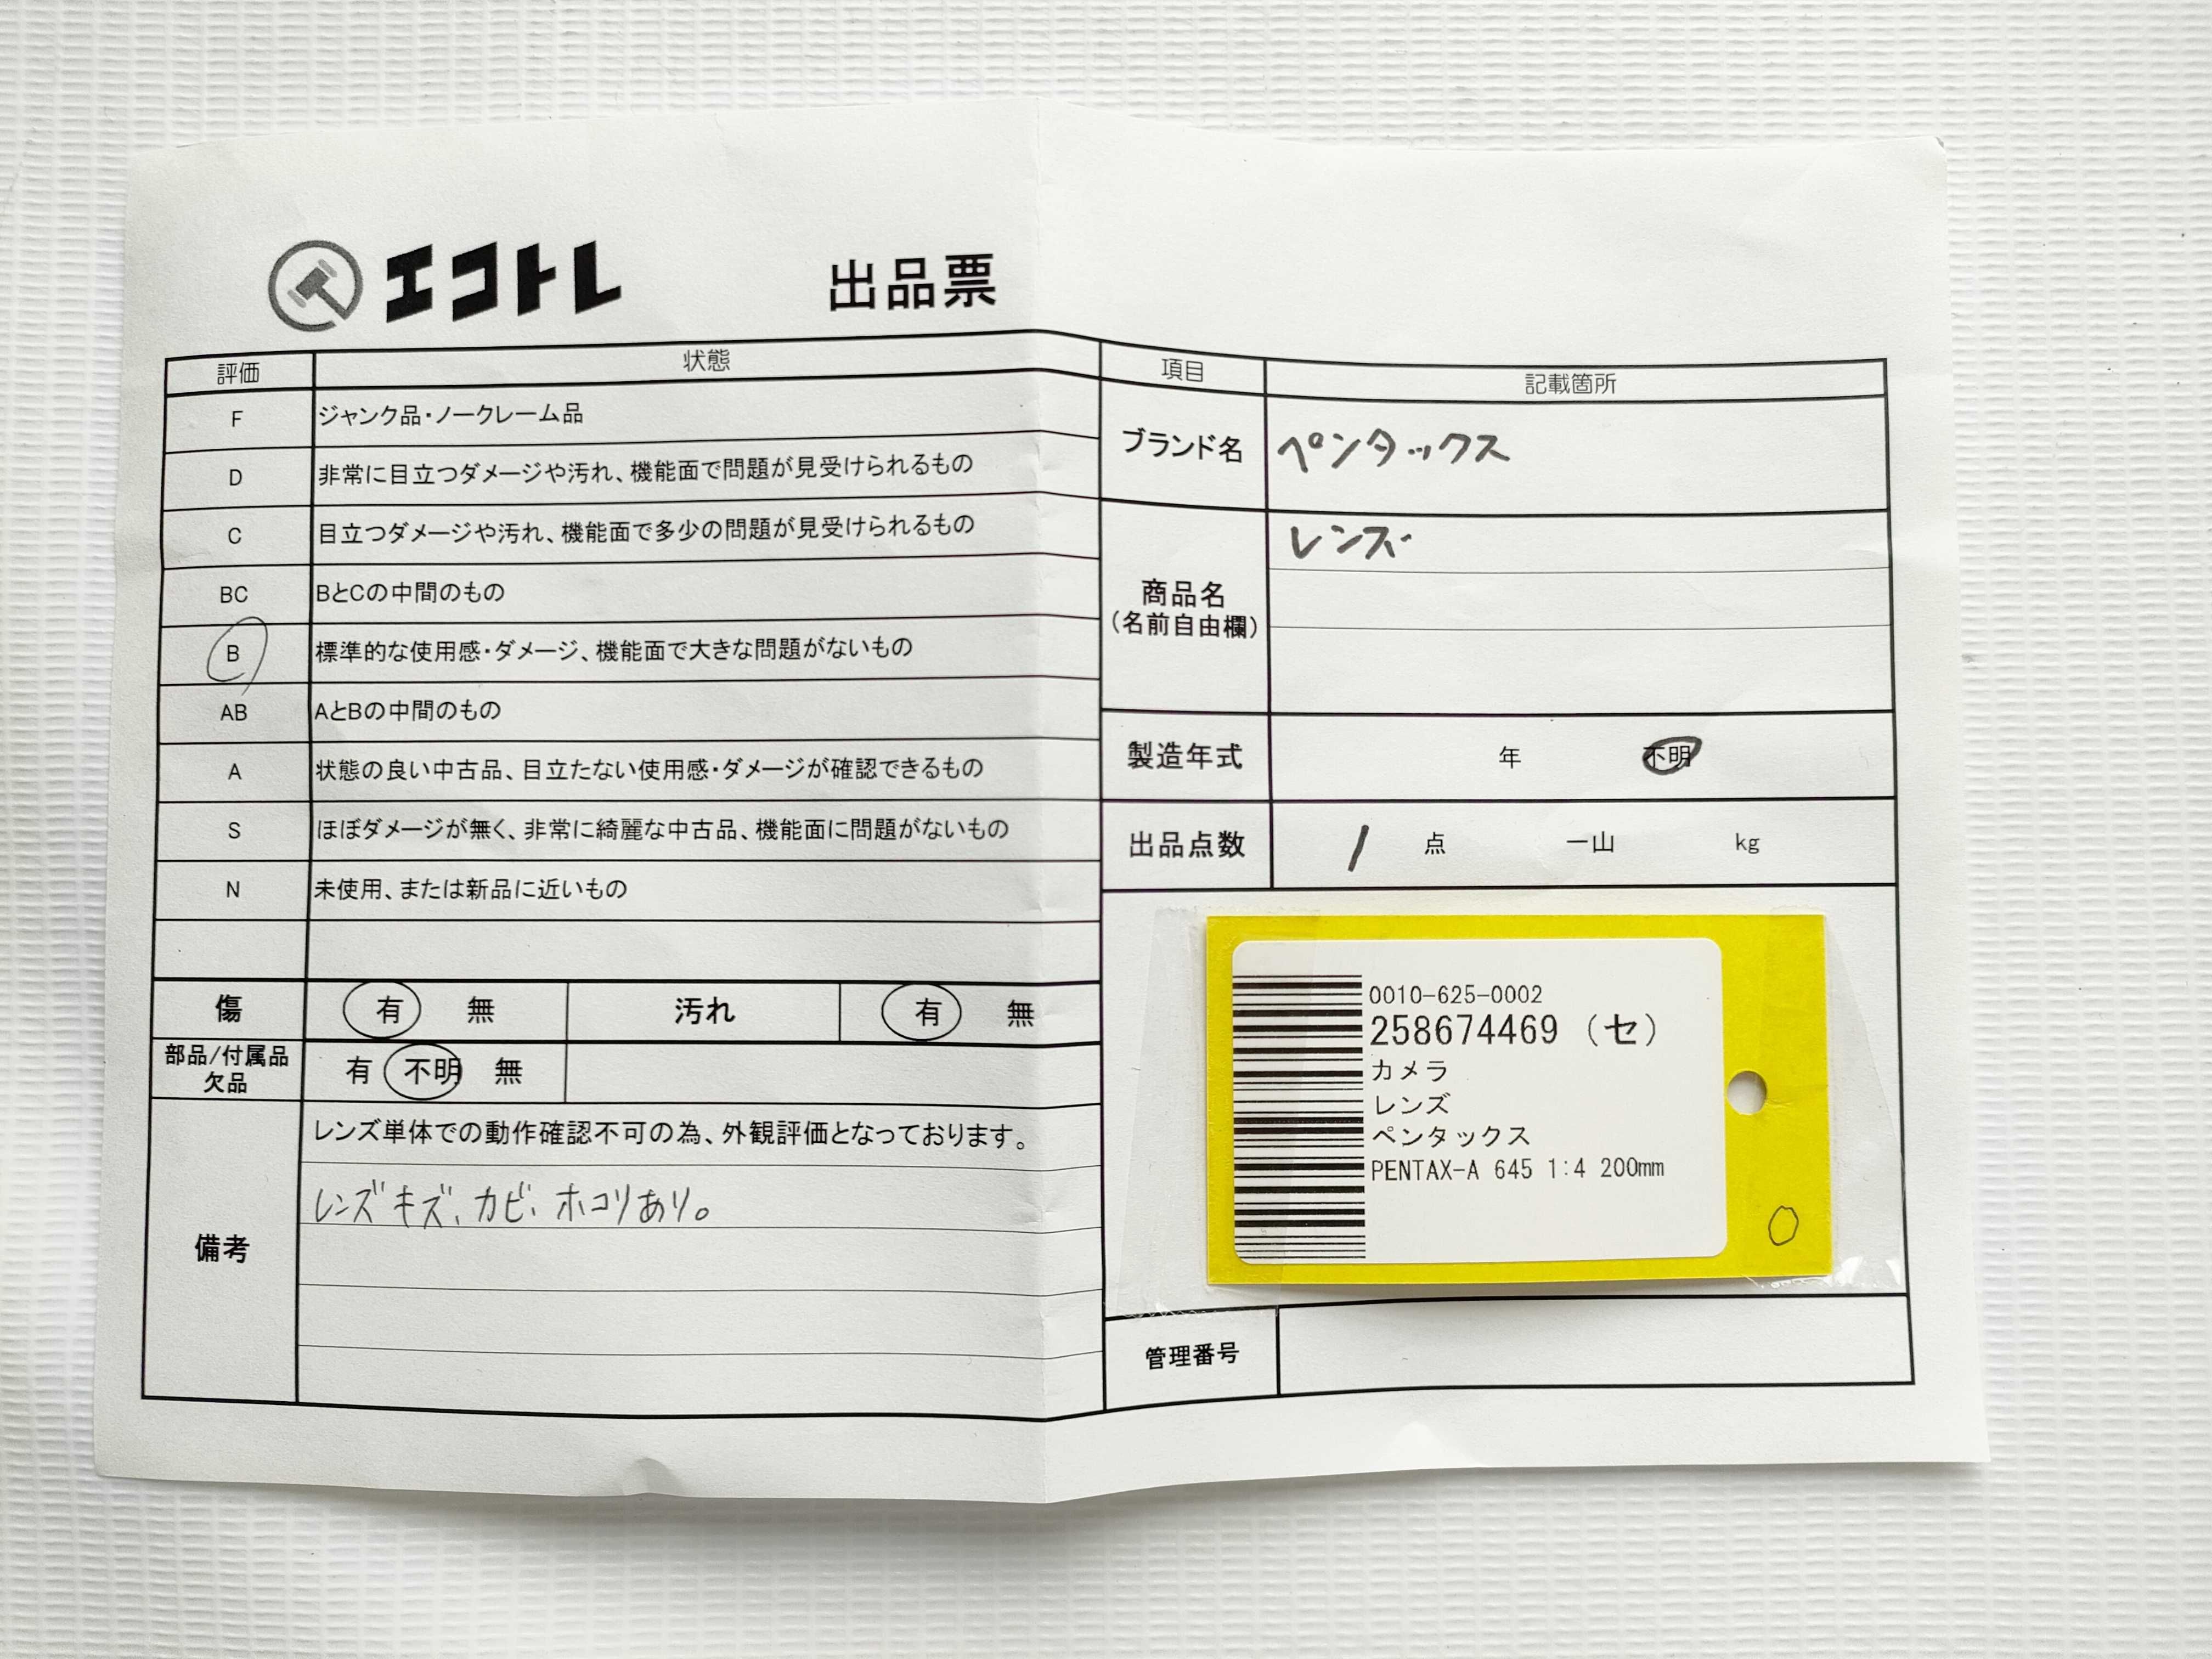 エコトレ 出品票
評価 状態
F ジャンク品・ノークレーム品
D 非常に目立つダメージや汚れ、機能面で問題が見受けられるもの
C 目立つダメージや汚れ、機能面で多少の問題が見受けられるもの
BC BとCの中間のもの
B 標準的な使用感・ダメージ、機能面で大きな問題がないもの
AB AとBの中間のもの
A 状態の良い中古品、目立たない使用感・ダメージが確認できるもの
S ほぼダメージが無く、非常に綺麗な中古品、機能面に問題がないもの
N 未使用、または新品に近いもの
傷 有 無 汚れ 有 無
部品/付属品
欠品
有 不明 無
備考
レンズ単体での動作確認不可の為、外観評価となっております。
レンズキズ、カビ、ホコリあり。
項目 記載箇所
ブランド名 ペンタックス
商品名
(名前自由欄)
レンズ
製造年式 年 不明
出品点数 1 点 一山 kg
0010-625-0002
258674469 (セ)
カメラ
レンズ
ペンタックス
PENTAX-A 645 1:4 200mm
管理番号